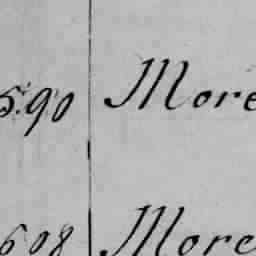 5.90 More
608 More